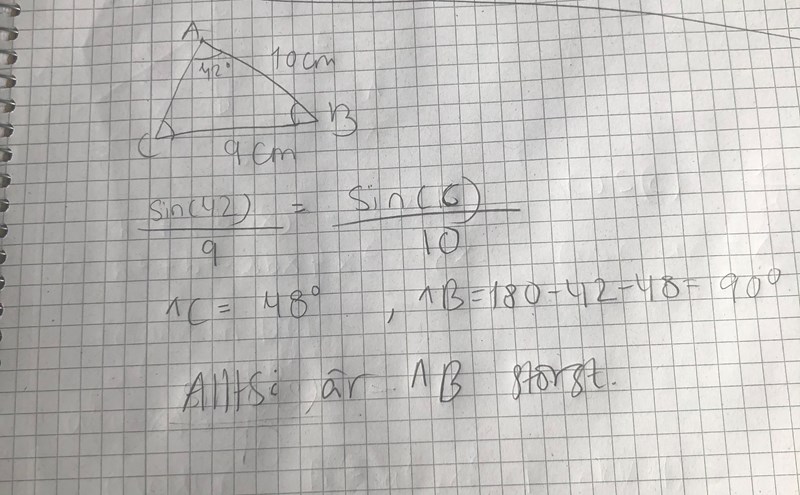 A
42° 10cm
C B
9 cm
sin(42) = Sin(C)
9 10
^C = 48° , ^B = 180-42-48= 90°
Alltså är ^B störst.